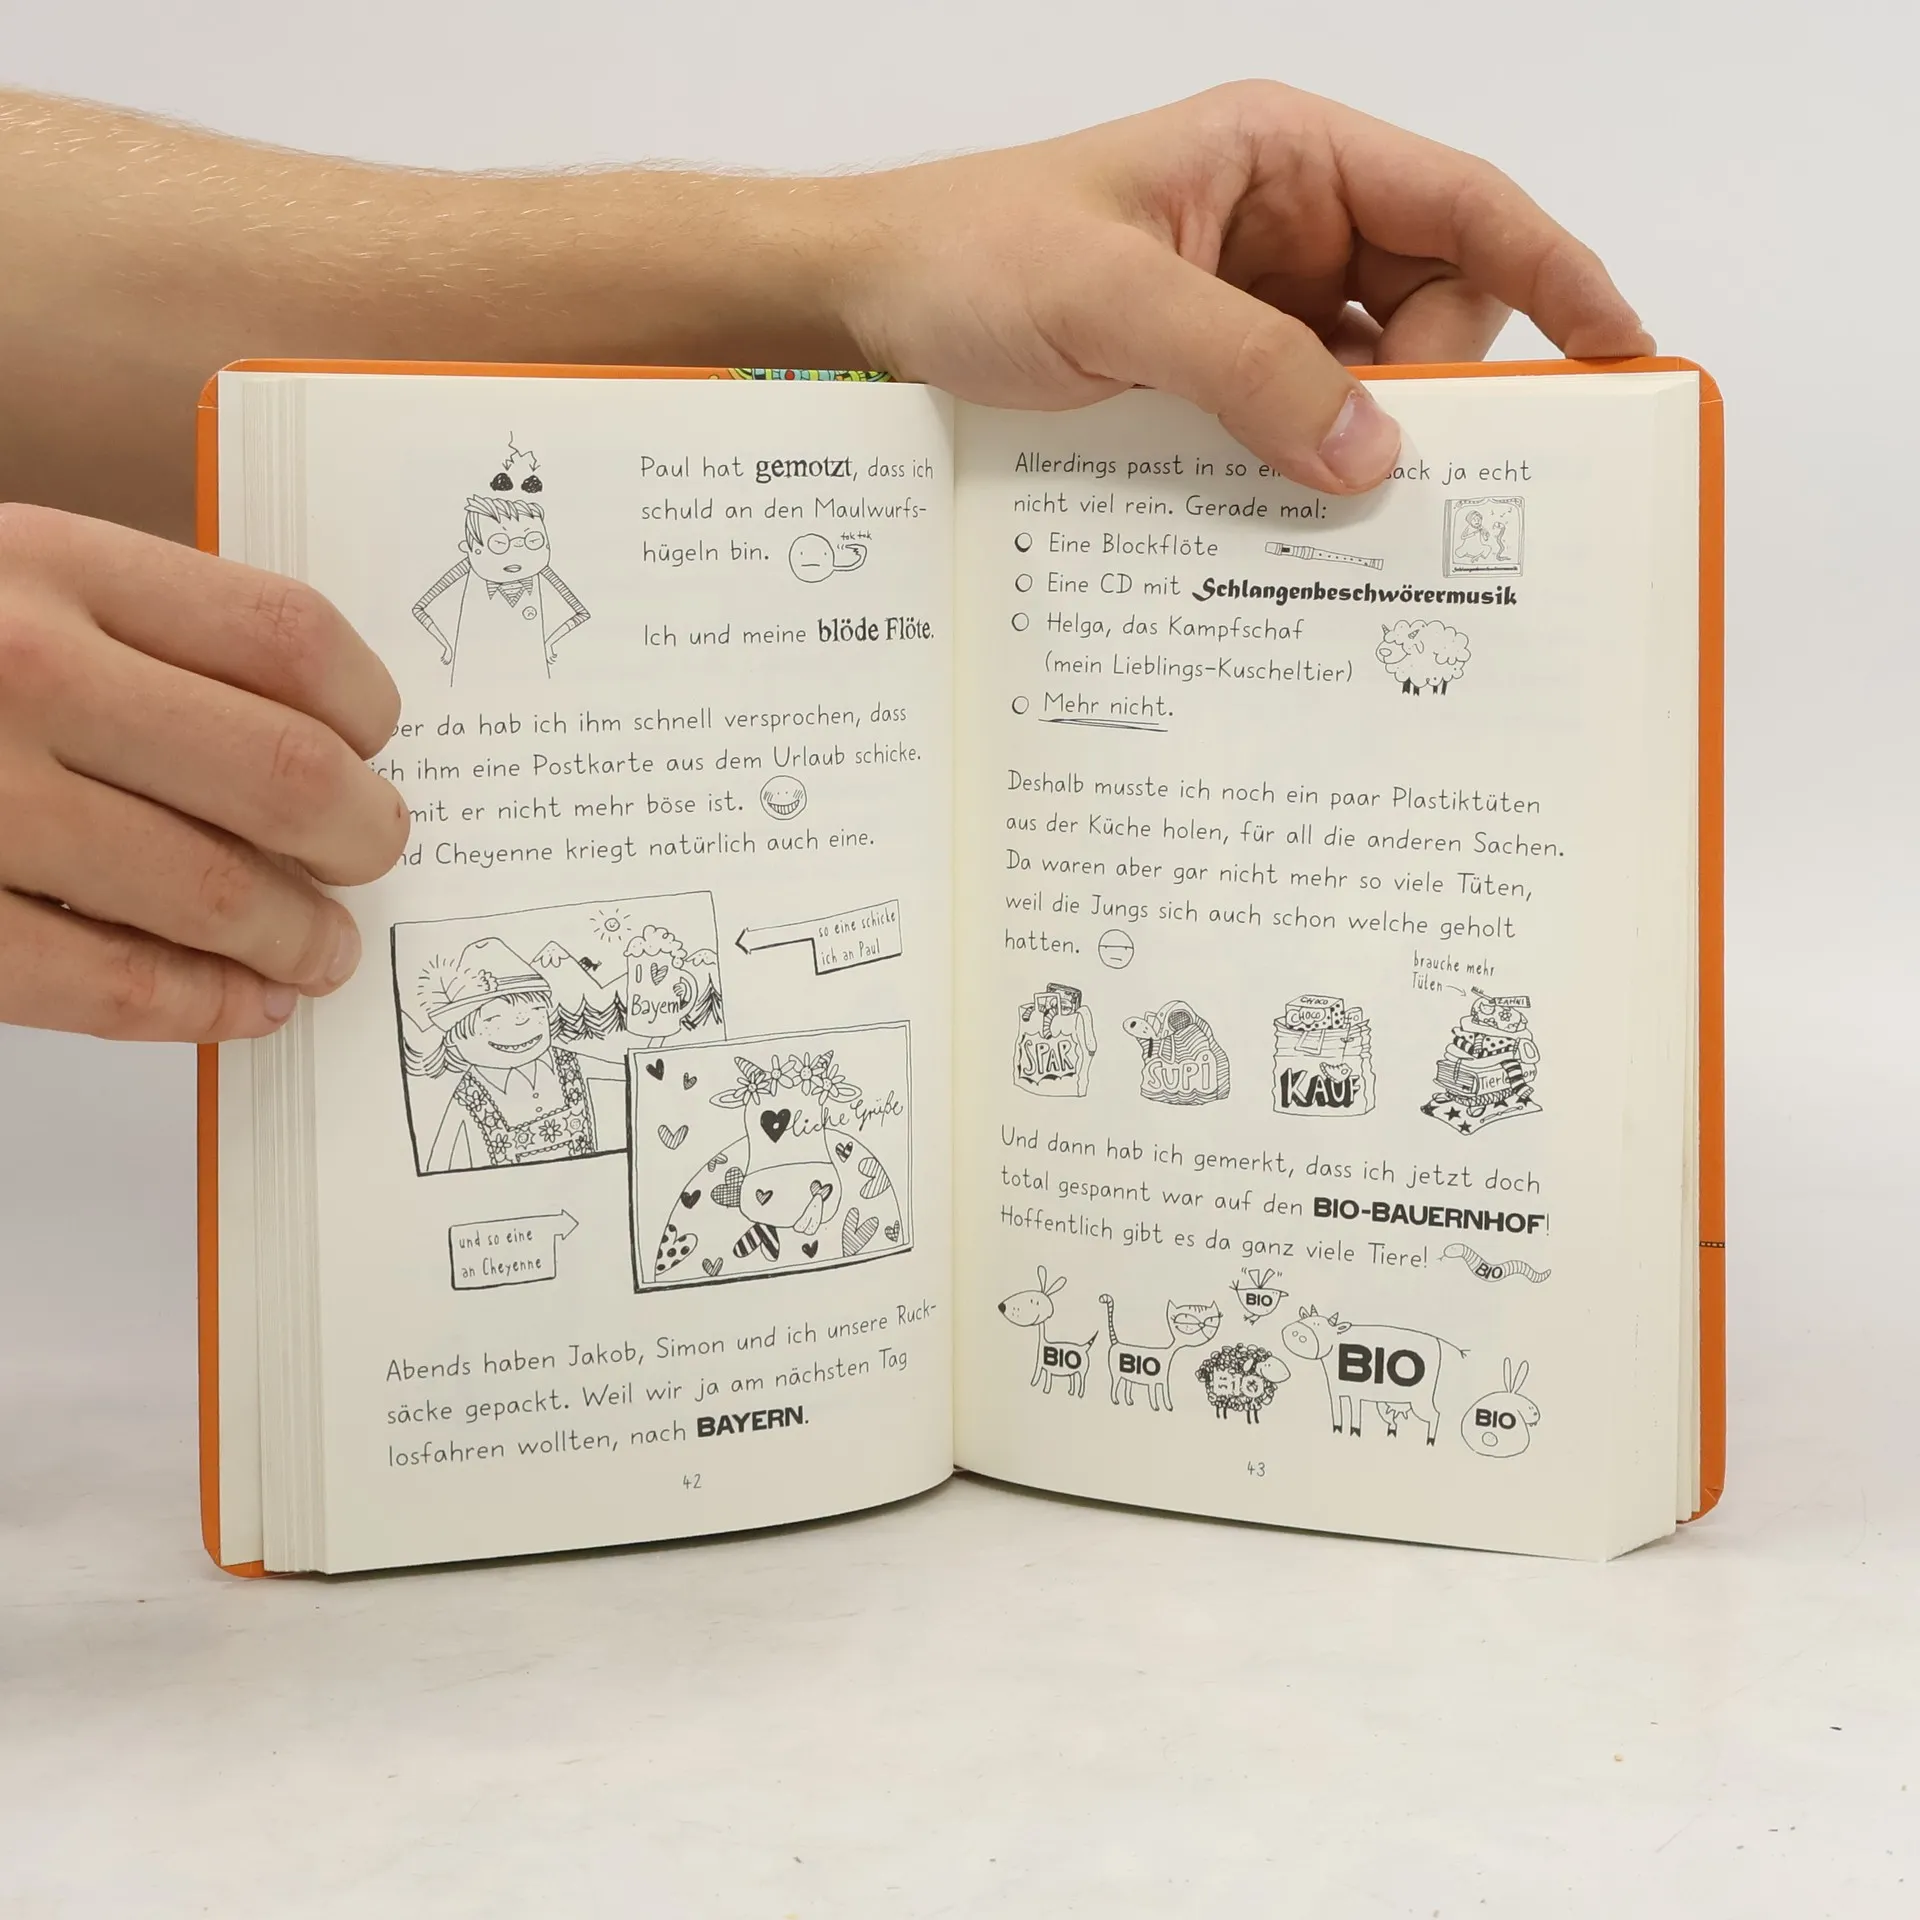 Paul hat gemotzt, dass ich
schuld an den Maulwurfs-
hügeln bin.
tok tok
Ich und meine blöde Flöte.
da hab ich ihm schnell versprochen, dass
ihm eine Postkarte aus dem Urlaub schicke.
er nicht mehr böse ist.
Cheyenne kriegt natürlich auch eine.
so eine schicke
ich an Paul
I
Bayern
liche Grüße
und so eine
an Cheyenne
Abends haben Jakob, Simon und ich unsere Ruck-
säcke gepackt. Weil wir ja am nächsten Tag
losfahren wollten, nach BAYERN.
42
Allerdings passt in so ja echt
nicht viel rein. Gerade mal:
Eine Blockflöte
Schlangenbeschwörermusik
Eine CD mit Schlangenbeschwörermusik
Helga, das Kampfschaf
(mein Lieblings-Kuscheltier)
Mehr nicht.
Deshalb musste ich noch ein paar Plastiktüten
aus der Küche holen, für all die anderen Sachen.
Da waren aber gar nicht mehr so viele Tüten,
weil die Jungs sich auch schon welche geholt
hatten.
brauche mehr
Tüten
SPAR
SUPI
CHOCO
CHOCO
KAUF
Und dann hab ich gemerkt, dass ich jetzt doch
total gespannt war auf den BIO-BAUERNHOF!
Hoffentlich gibt es da ganz viele Tiere!
BIO
BIO
BIO
BIO
BIO
BIO
BIO
43